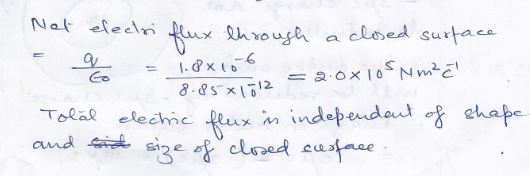 Net electri flux through a closed surface
= q/ε₀ = 1.8×10⁻⁶ / 8.85×10⁻¹² = 2.0×10⁵ Nm²C⁻¹
Total electric flux is independent of shape
and size of closed surface.